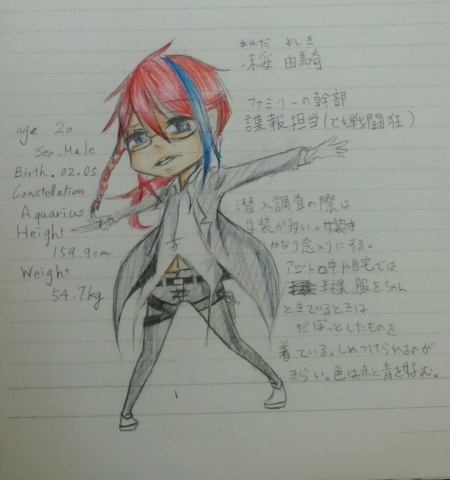 あわだ よしき
沫妥 由騎
ファミリーの幹部
諜報担当(でも戦闘狂)
age 20
Sex. Male
Birth. 02.05
Constellation
Aquarius
Height
159.9cm
Weight
54.7kg
潜入調査の際は
女装が多い。
かなり念入りにする。
中や自宅では
半裸。服をちゃん
ときているときは
だぼっとしたものを
着ている。しめつけられるのが
きらい。色は赤と青を好む。